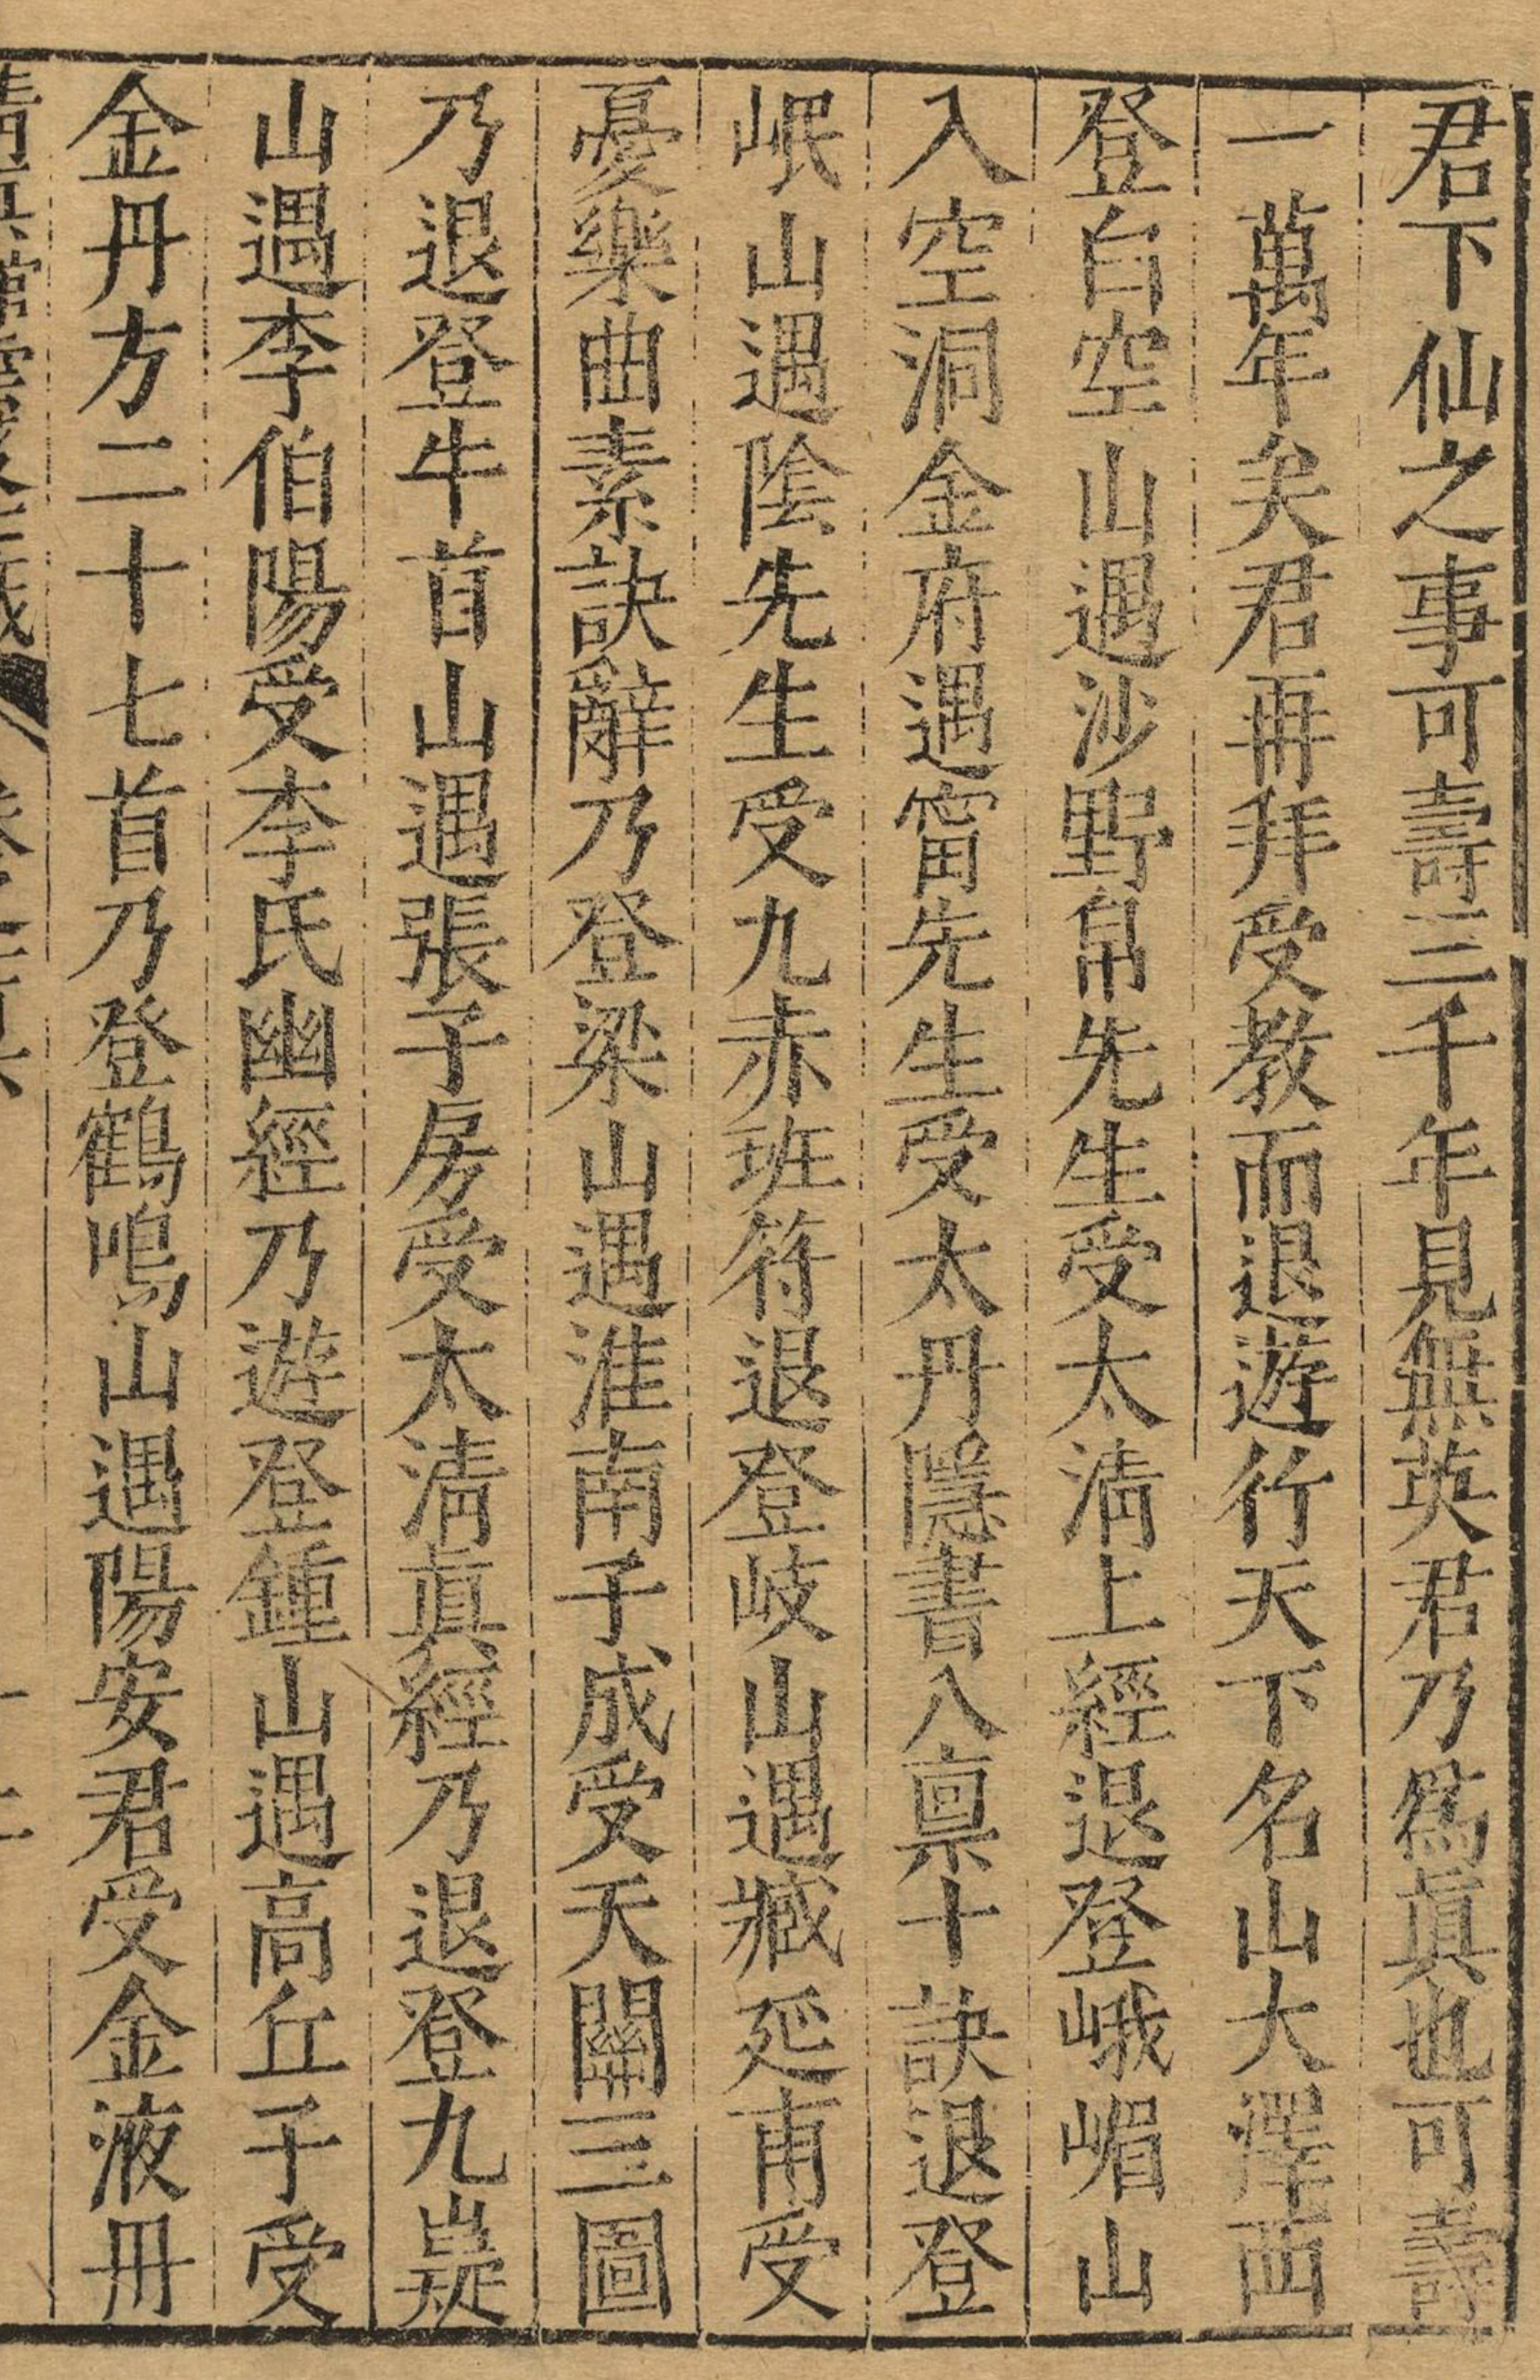 君下仙之事可壽三千年見無英君乃爲真也可壽
一萬年矣君再拜受教而退遊行天下名山大澤西
登白空山遇沙野帛先生受太清上經退登峨嵋山
入空洞金府遇甯先生受太丹隱書八稟十訣退登
岷山遇陰先生受九赤班符退登岐山遇臧延甫受
憂樂曲素訣辭乃登梁山遇淮南子成受天關三圖
乃退登牛首山遇張子房受太清真經乃退登九嶷
山遇李伯陽受李氏幽經乃遊登鍾山遇高丘子受
金丹方二十七首乃登鶴鳴山遇陽安君受金液丹